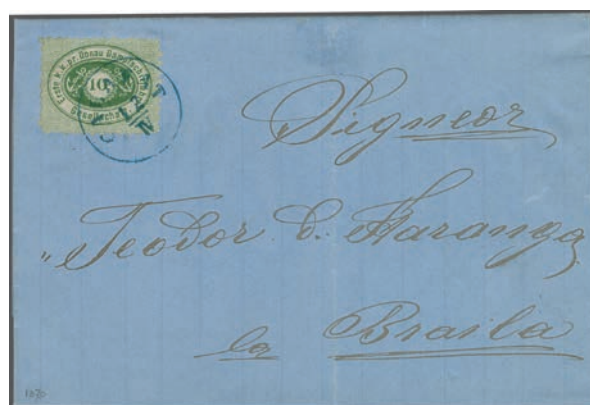 Erste k. k. pr. Donau Dampfschiffahrt
10
Gesellschaft
Signeor
„Teodor C. Haranga
la Braila
1870